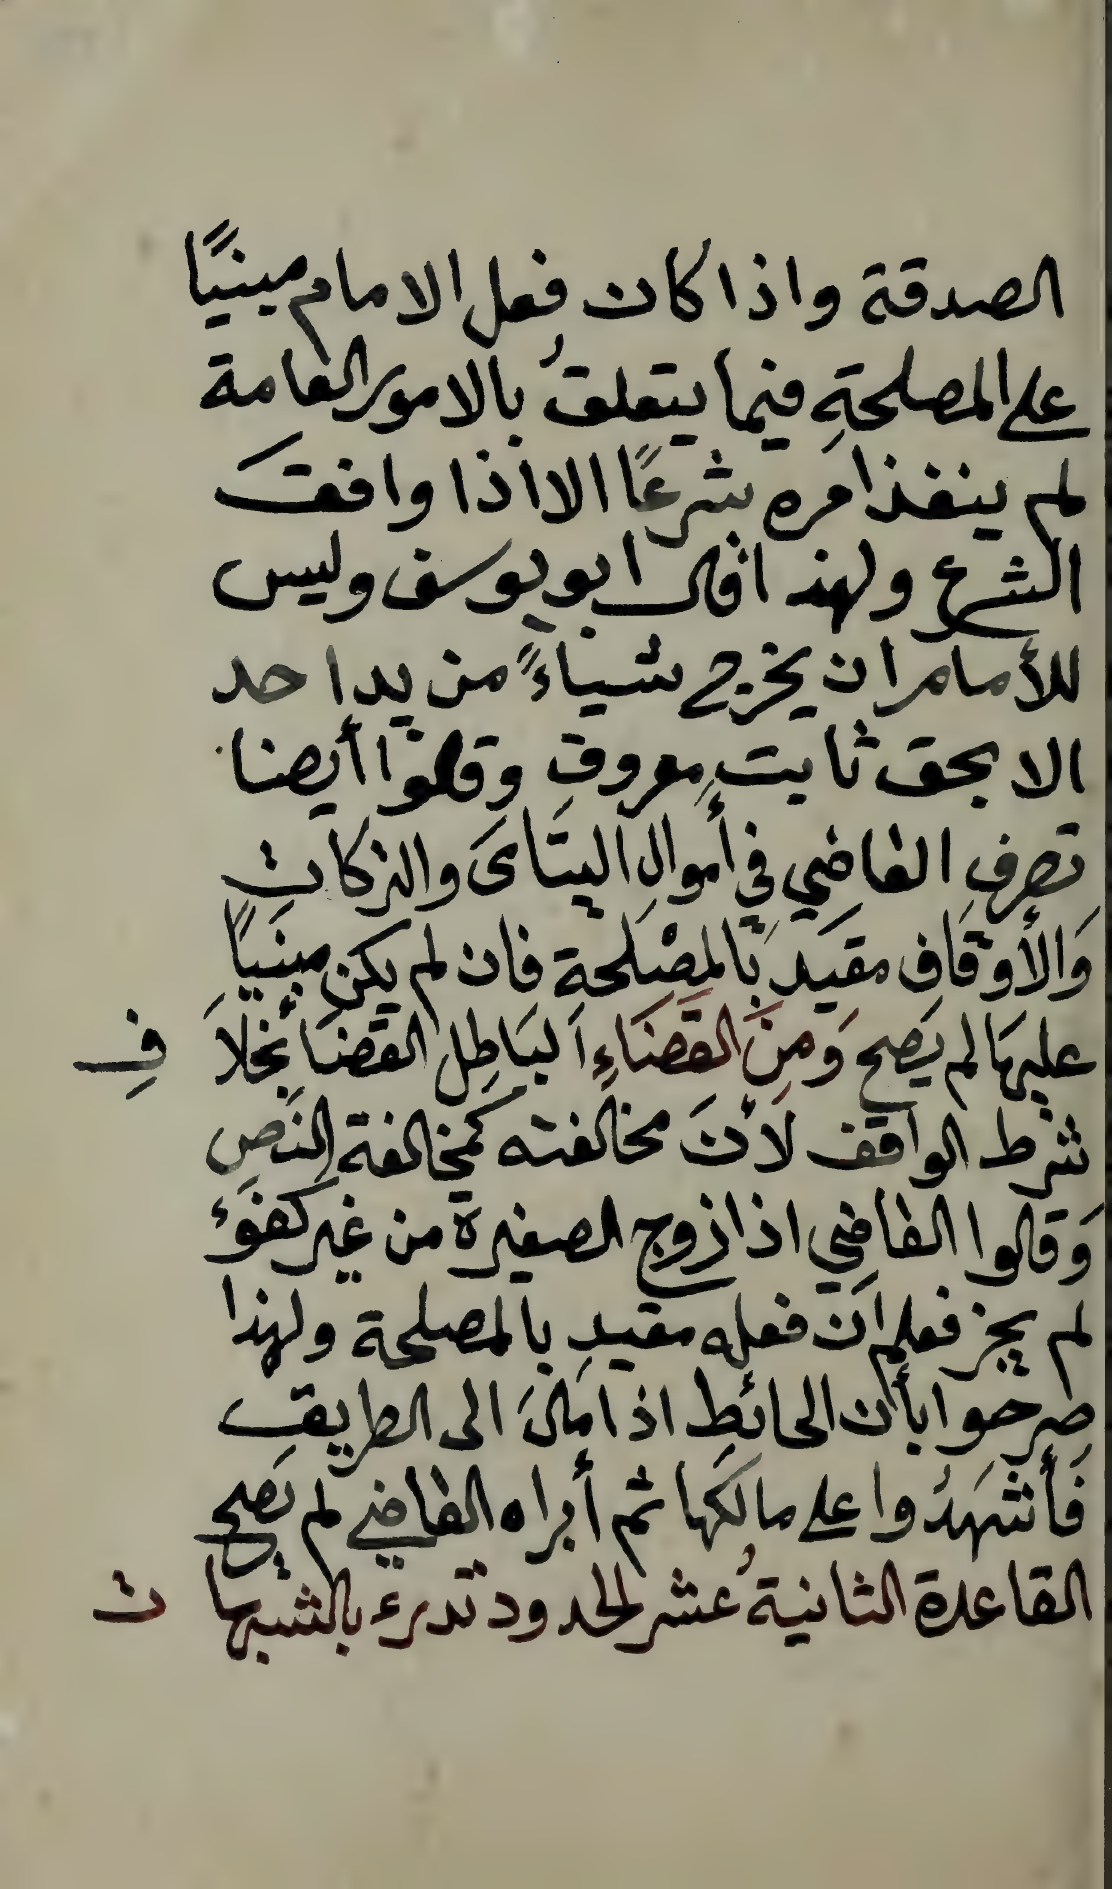 الصدقة واذا كان فعل الامام مبنيًا
على المصلحةِ فيما يتعلقُ بالامور العامة
لم ينفذ امره شرعًا الا اذا وافقَ
الشرع ولهذا قال ابو يوسف وليس
للأمام ان يخرج شياءً من يد احد
الا بحق ثابتٍ معروفٍ وقالوا أيضا
تصرف القاضي في أموال اليتَامَى والتركاتِ
وَالأوقَاف مقيَد بَالمصْلَحةِ فان لم يكن مبنَيًا
عليهَا لم يَصح وَمِنَ القَضَاءِ البَاطِل القَضَا بخلاَ فِ
شرط الواقف لأنَ مخالفته كمخالفة النَصِ
وَقالوا القاضِي اذا زوج الصغيرة من غير كفوْء
لم يجز فعله انَ فعله مقيدِ بالمصلحة ولهذا
صرحوا بأن الحائط اذا مَالَ الى الطريقِ
فَأشهَدُوا على مالكها ثم أبراه القاضي لم يَصح
القاعدة الثانية عُشر الحدود تدرء بالشبها ت